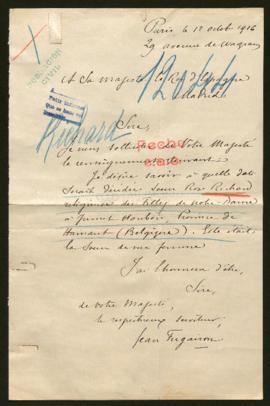 Paris le 12 octob 1916
29 avenue de Wagram
POBLACIÓN
CIVIL
A Sa majesté le Roi d'Espagne
Madrid
Richard
Sire,
Je viens solliciter de Votre Majesté
le renseignement suivant.
Hecho
Je désire savoir à quelle date
serait décédée Soeur Rose Richard
religieuse des Filles de Notre-Dame
à Province de
Hainaut (Belgique). Elle était
la Soeur de ma femme
J'ai l'honneur d'être,
Sire,
de votre Majesté,
le respectueux serviteur,
Jean Fugairon